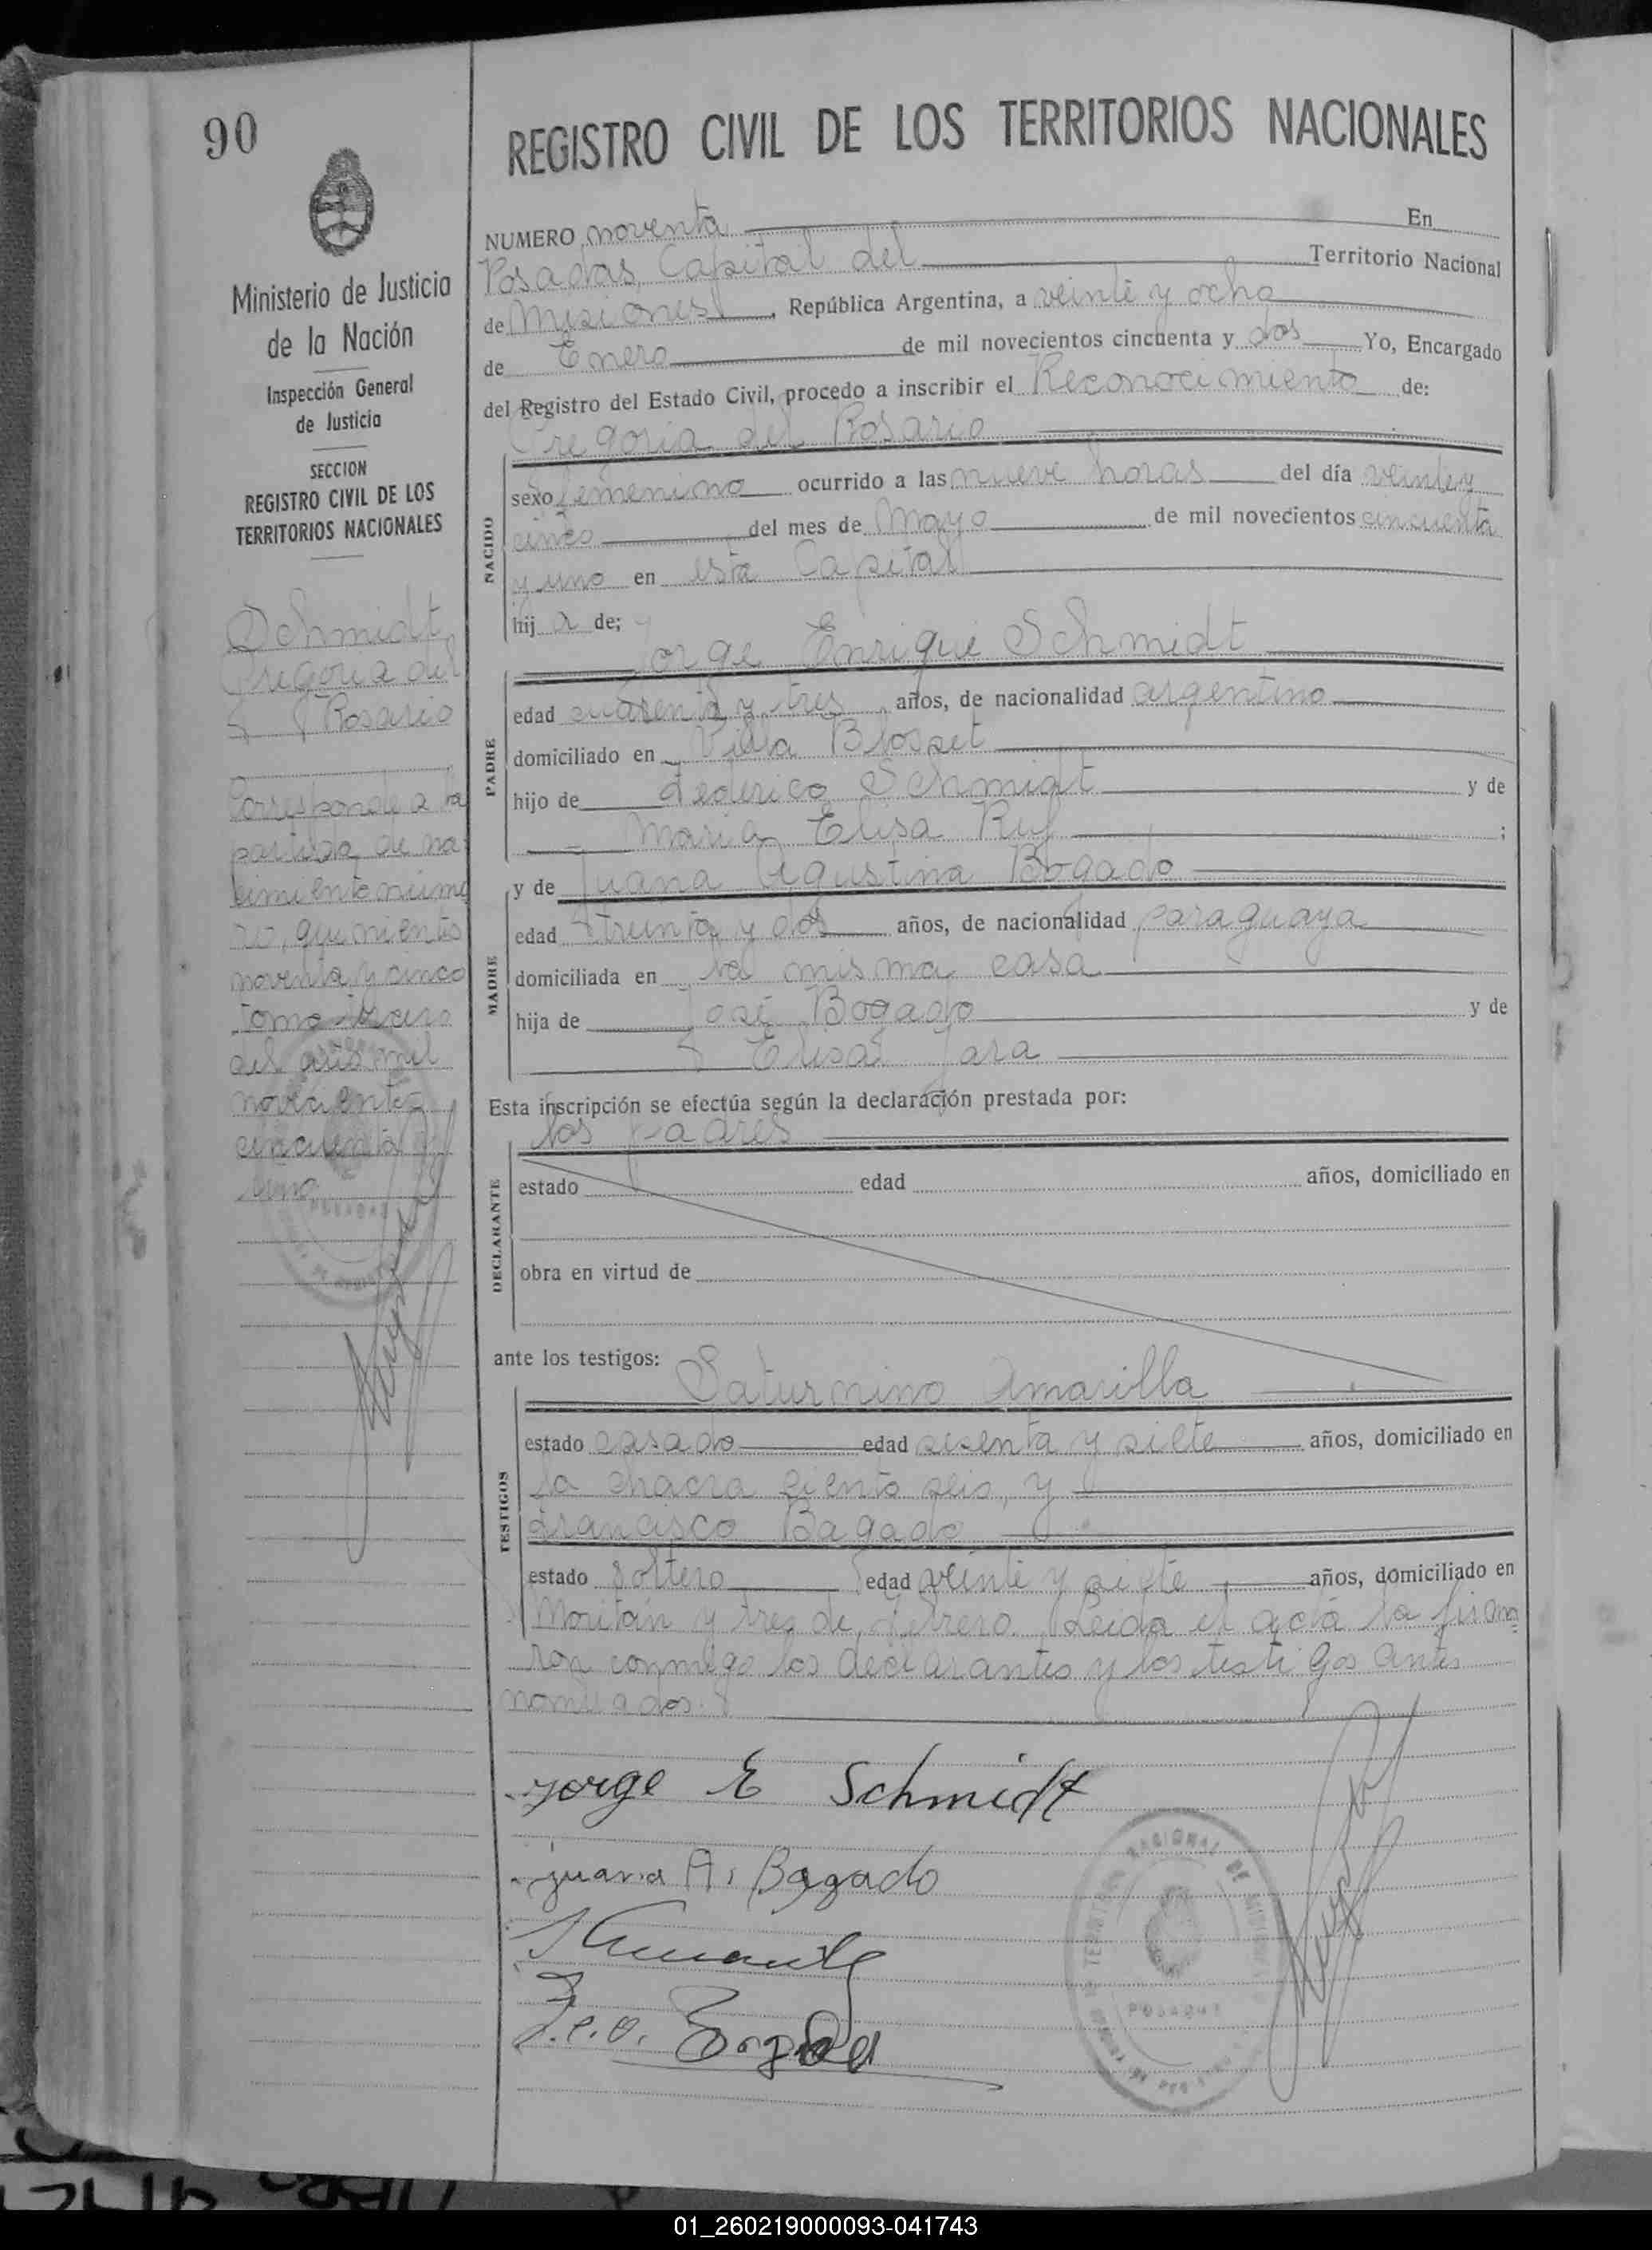 90
Ministerio de Justicia
de la Nación
Inspección General
de Justicia
SECCION
REGISTRO CIVIL DE LOS
TERRITORIOS NACIONALES
Schmidt,
Gregoria del
Rosario
Corresponde a la
partida de na-
cimiento núme
ro, quinientos
noventa y cinco
tomo tercero
del año mil
novecientos
cincuenta y
uno.
REGISTRO CIVIL DE LOS TERRITORIOS NACIONALES
NUMERO noventa En
Posadas, Capital del Territorio Nacional
de Misiones, República Argentina, a veinte y ocho
de Enero de mil novecientos cincuenta y dos Yo, Encargado
del Registro del Estado Civil, procedo a inscribir el Reconocimiento de:
Gregoria del Rosario
NACIDO
sexo femenino ocurrido a las nueve horas del día veinte y
cinco del mes de Mayo de mil novecientos cincuenta
y uno en esta Capital
hij a de;
Jorge Enrique Schmidt
PADRE
edad cuarenta y tres años, de nacionalidad argentino
domiciliado en Villa Blosset
hijo de Federico Schmidt y de
Maria Elisa Ruf ;
y de Juana Agustina Bogado
MADRE
edad treinta y dos años, de nacionalidad paraguaya
domiciliada en la misma casa
hija de José Bogado y de
Elisa Jara
Esta inscripción se efectúa según la declaración prestada por:
los padres
DECLARANTE
estado edad años, domiciliado en
obra en virtud de
ante los testigos:
Saturnino Amarilla
TESTIGOS
estado casado edad sesenta y siete años, domiciliado en
la chacra ciento seis, y
Francisco Bagado
estado soltero edad veinte y siete años, domiciliado en
Moritán y tres de Febrero. Leida el acta la firma
ron conmigo los declarantes y los testigos antes
nombrados.
Jorge E Schmidt
juana A. Bagado
TERRITORIO NACIONAL DE MISIONES
POSADAS
01_260219000093-041743